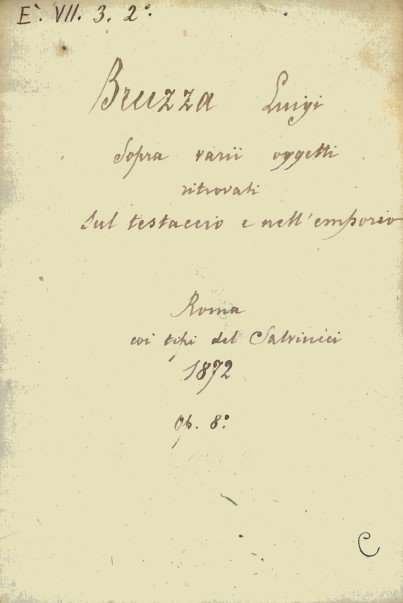 E. VII. 3. 2°.
Bruzza Luigi
Sopra varii oggetti
ritrovati
sul testaccio e nell'emporio
Roma
coi tipi del Salviucci
1872
op. 8°.
C